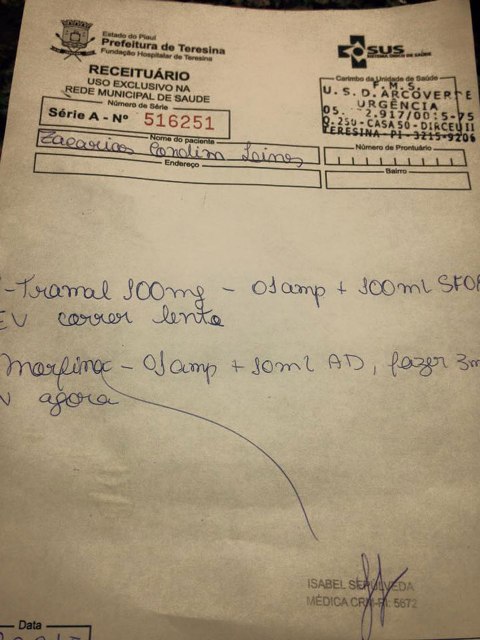 Estado do Piauí
Prefeitura de Teresina
Fundação Hospitalar de Teresina
SUS
SISTEMA ÚNICO DE SAÚDE
RECEITUÁRIO
USO EXCLUSIVO NA
REDE MUNICIPAL DE SAUDE
Número de Série
Série A - Nº 516251
Carimbo da Unidade de Saúde
F.M.S.
U.S.D.ARCOVERDE
URGÊNCIA
05. 2.917/0015-75
Q.250-CASA50-DIRCEUII
TERESINA-PI-3215-9206
Nome do paciente
Zacarias Landim
Número do Prontuário
Endereço
Bairro
-Tramal 100mg - 01amp + 100ml SF0
EV correr lento
Morfina - 01amp + 10ml AD, fazer 3m
agora
ISABEL SEPÚLVEDA
MÉDICA CRM-PI: 5672
Data